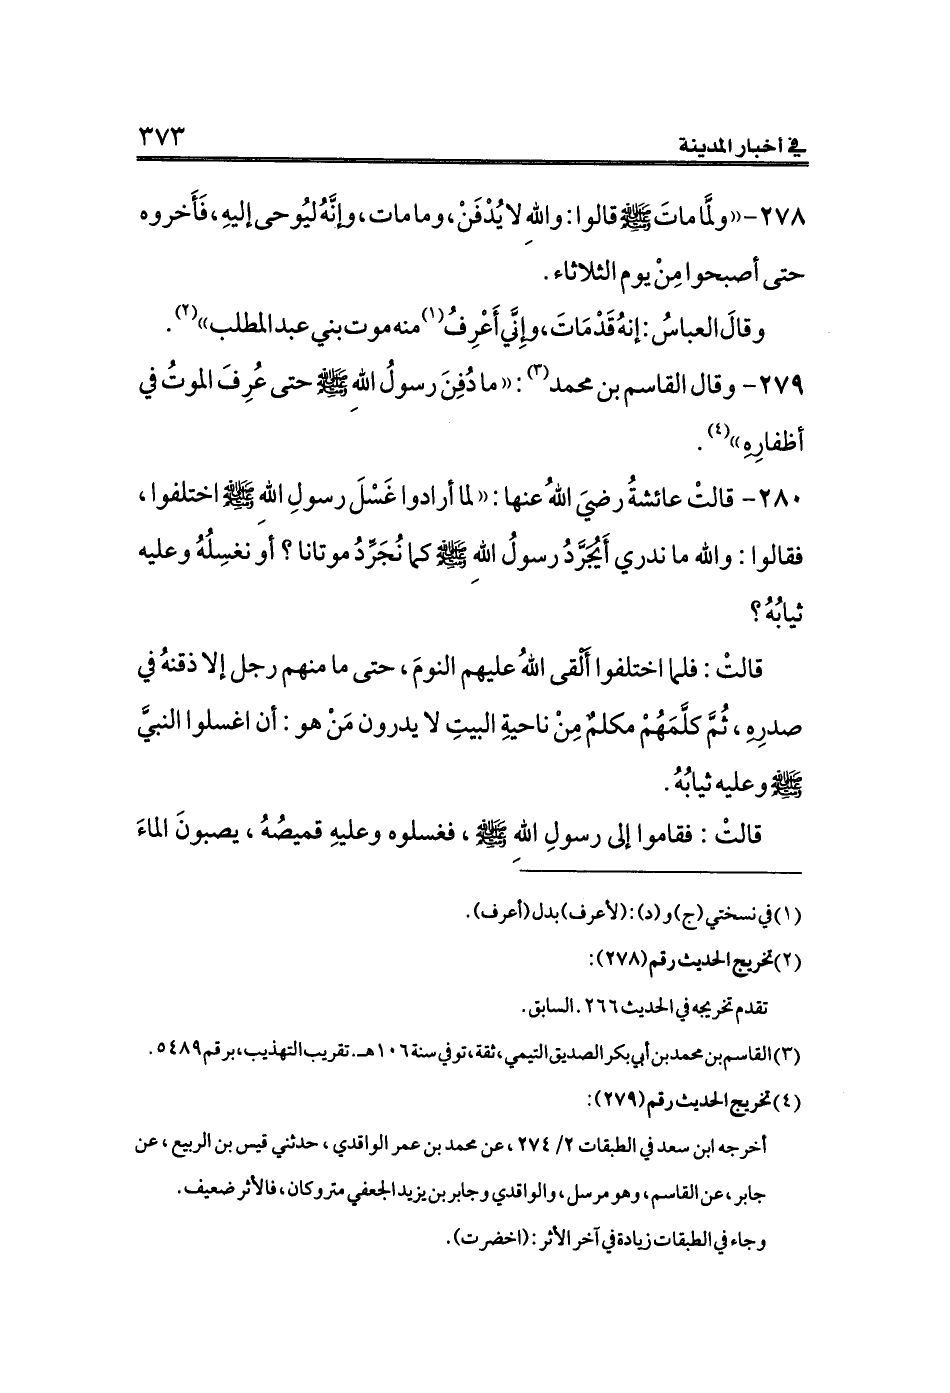 في أخبار المدينة ٣٧٣
٢٧٨- «ولمَّا ماتَ ﷺ قالوا: واللهِ لا يُدْفَنْ، وما مات، وإنَّهُ ليُوحى إليهِ، فَأَخروه
حتى أصبحوا مِنْ يوم الثلاثاء.
وقالَ العباسُ: إنهُ قَدْ مَاتَ، وإنَّي أَعْرِفُ(١) منه موت بني عبد المطلب»(٢).
٢٧٩- وقال القاسم بن محمد(٣): «ما دُفِنَ رسولُ اللهِ ﷺ حتى عُرِفَ الموتُ في
أظفارِهِ»(٤).
٢٨٠- قالتْ عائشةُ رضيَ اللهُ عنها: «لما أرادوا غَسْلَ رسولِ اللهِ ﷺ اختلفوا،
فقالوا: والله ما ندري أَيُجَرَّدُ رسولُ اللهِ ﷺ كما نُجَرِّدُ موتانا؟ أو نغسِلُهُ وعليه
ثيابُهُ؟
قالتْ: فلما اختلفوا أَلْقى اللهُ عليهم النومَ، حتى ما منهم رجل إلا ذقنهُ في
صدرِهِ، ثُمَّ كلَّمَهُمْ مكلمٌ مِنْ ناحيةِ البيتِ لا يدرون مَنْ هو: أن اغسلوا النبيَّ
ﷺ وعليه ثيابُهُ.
قالتْ: فقاموا إلى رسولِ اللهِ ﷺ، فغسلوه وعليهِ قميصُهُ، يصبونَ الماءَ
(١) في نسختي (ج) و(د): (لأعرف) بدل (أعرف).
(٢) تخريج الحديث رقم (٢٧٨):
تقدم تخريجه في الحديث ٢٦٦. السابق.
(٣) القاسم بن محمد بن أبي بكر الصديق التيمي، ثقة، توفي سنة ١٠٦هـ. تقريب التهذيب، برقم ٥٤٨٩.
(٤) تخريج الحديث رقم (٢٧٩):
أخرجه ابن سعد في الطبقات ٢/ ٢٧٤، عن محمد بن عمر الواقدي، حدثني قيس بن الربيع، عن
جابر، عن القاسم، وهو مرسل، والواقدي وجابر بن يزيد الجعفي متروكان، فالأثر ضعيف.
وجاء في الطبقات زيادة في آخر الأثر: (اخضرت).